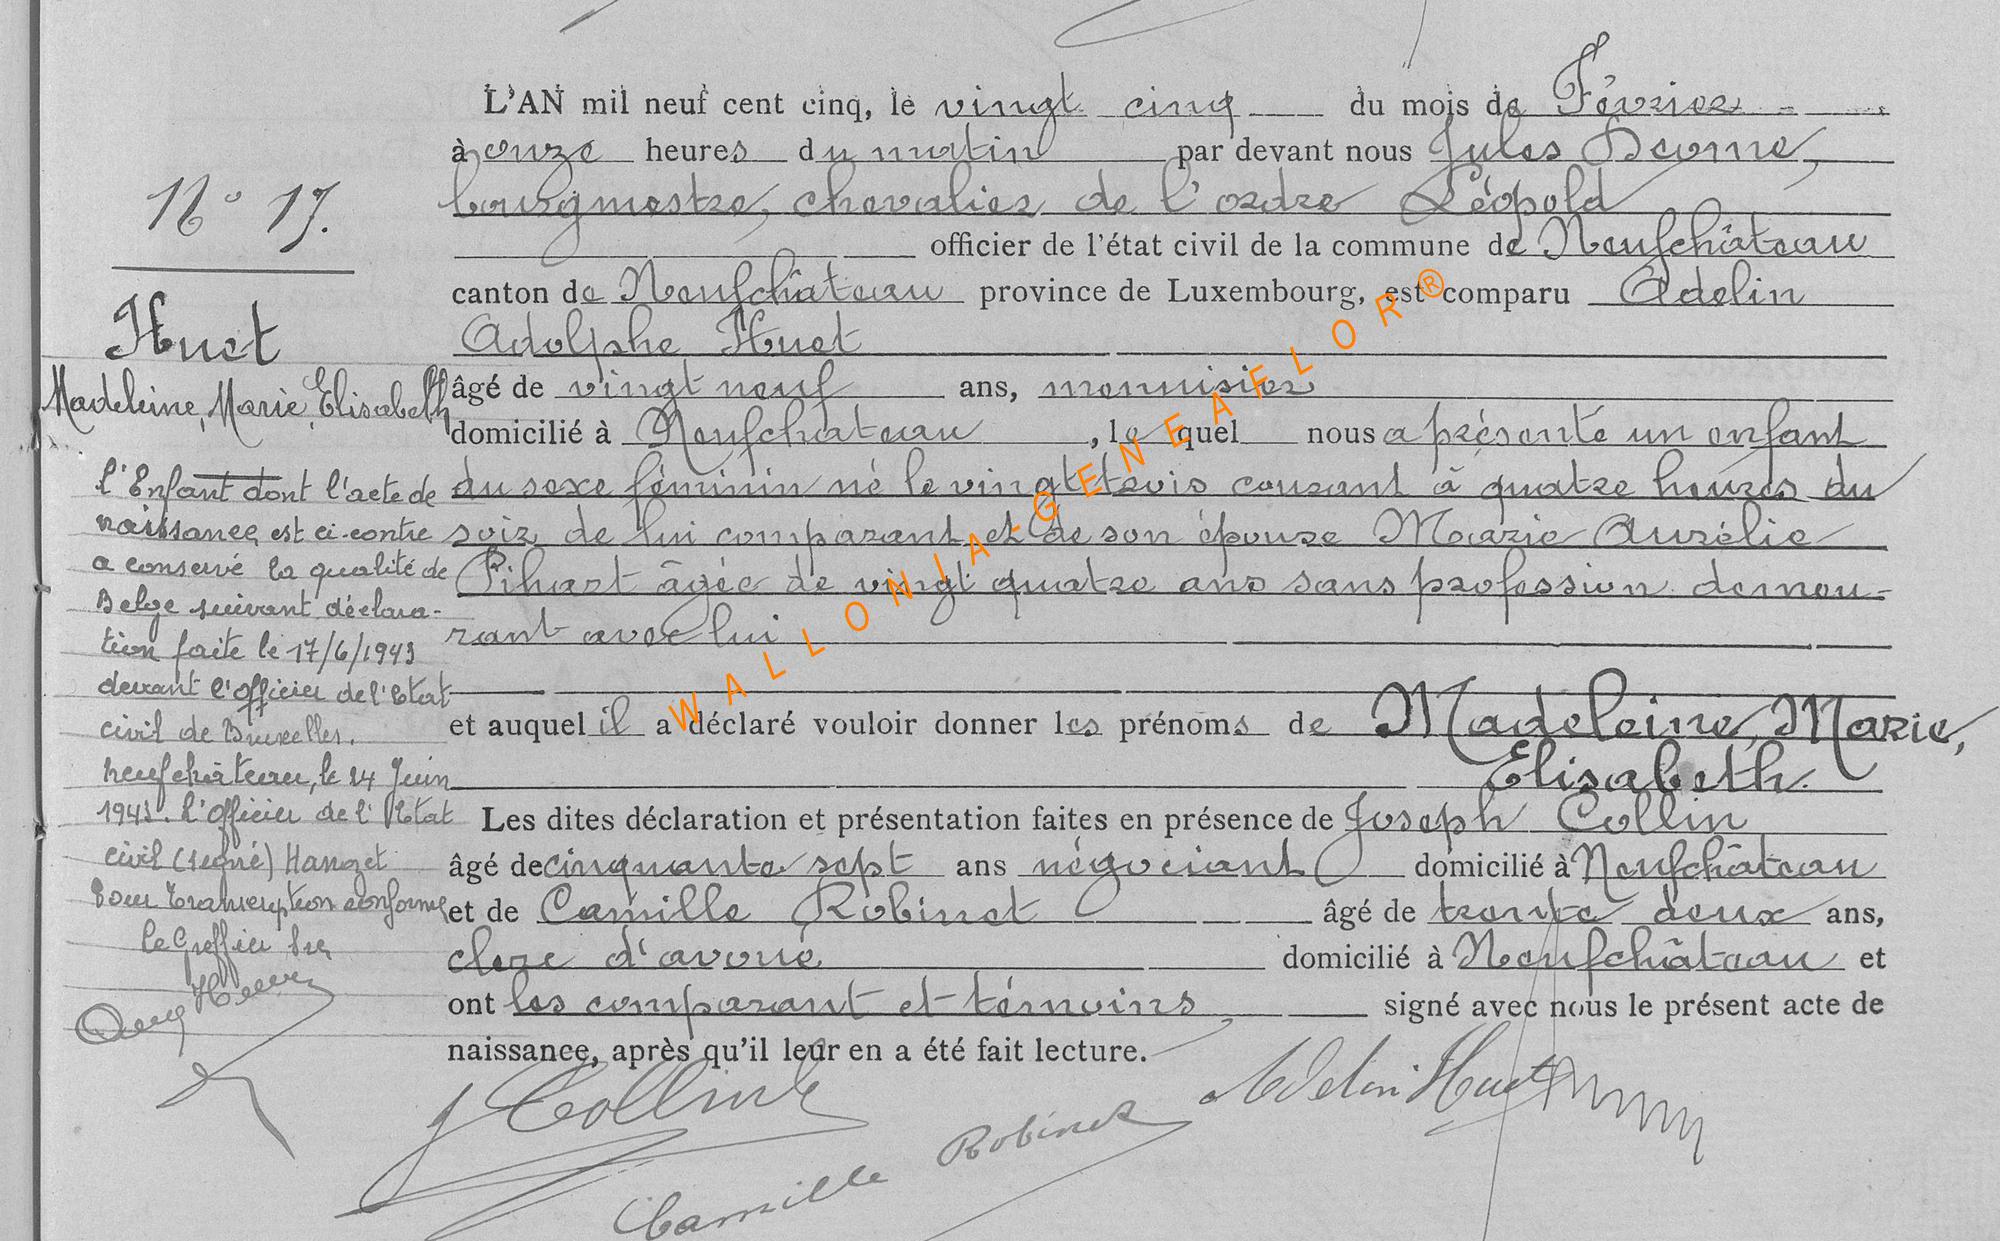 N° 17.
Huet
Madeleine, Marie, Elisabeth
l'Enfant dont l'acte de
naissance est ci-contre
a conservé la qualité de
Belge suivant déclara-
tion faite le 17/6/1943
devant l'Officier de l'Etat
civil de Bruxelles.
Neufchâteau, le 24 Juin
1943. L'Officier de l'Etat
civil (signé) Hanozet
Pour transcription conforme
le Greffier
L'AN mil neuf cent cinq, le vingt cinq du mois de Février
à onze heures du matin par devant nous Jules
bourgmestre, chevalier de l'ordre Léopold
officier de l'état civil de la commune de Neufchâteau
canton de Neufchâteau province de Luxembourg, est comparu Adelin
Adolphe Huet
âgé de vingt neuf ans, menuisier
domicilié à Neufchateau, lequel nous a présenté un enfant
du sexe féminin né le vingt trois courant à quatre heures du
soir, de lui comparant et de son épouse Marie Aurélie
Pihart âgée de vingt quatre ans sans profession demeu-
rant avec lui
et auquel il a déclaré vouloir donner les prénoms de Madeleine, Marie,
Elisabeth.
Les dites déclaration et présentation faites en présence de Joseph Collin
âgé de cinquante sept ans négociant domicilié à Neufchâteau
et de Camille Robinet âgé de trente deux ans,
clerc d'avoué domicilié à Neufchâteau et
ont les comparant et témoins signé avec nous le présent acte de
naissance, après qu'il leur en a été fait lecture.
J Collin
Camille Robinet
Adelin Huet
WALLONIA-GENEAFLOR®